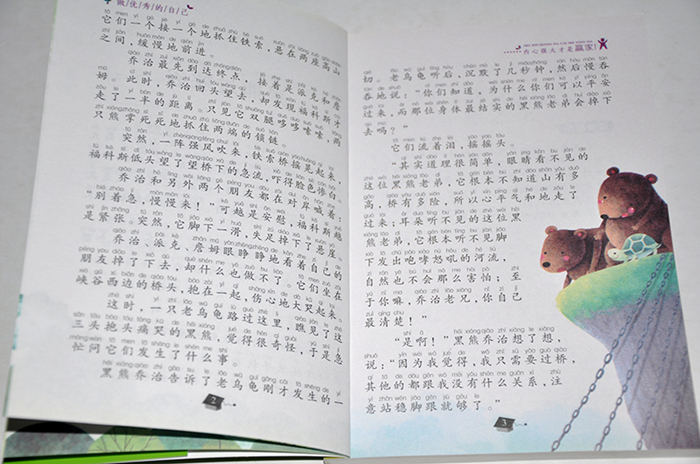 做优秀的自己
它们一个接一个地抓住铁索，悬在两座高山
之间，缓慢地前进。
乔治最先到达终点，接着是派克和詹
姆。此时，乔治回头望去，却发现福科斯才
走了一半的距离。只见它双腿哆哆嗦嗦，两
只熊掌死死地抓住两端的锁链。
突然，一阵强风吹来，铁索桥摇晃起来，
福科斯低头望了望桥下的急流，吓得脸色惨白。
乔治和另外两个朋友都在对岸喊着：
“别着急，慢慢来！”可越是安慰，福科斯越
是紧张。突然，它脚下一滑，失足掉下了悬崖。
乔治、派克、詹姆眼睁睁地看着自己的
朋友掉了下去，却什么也做不了。它们坐在
峡谷西边的桥头，抱在一起，伤心地大哭起来。
这时，一只老乌龟路过这里，瞧见了这
三头抱头痛哭的黑熊，觉得很奇怪，于是急
忙问它们发生了什么事。
黑熊乔治告诉了老乌龟刚才发生的一
2
内心强大才是赢家！
切。老乌龟听后，沉默了几秒钟，然后慢吞
吞地说：“你们知道，为什么你们可以平安
过来，而那位身体最结实的黑熊老弟会掉下
去吗？”
它们流着泪，摇摇头。
“其实道理很简单，眼睛看不见的
这位黑熊老弟，它根本不知道山有多
高，桥有多险，所以心平气和地走了
过来；耳朵听不见的这位黑
熊老弟，它根本听不见脚
下发出咆哮怒吼的河流，
自然也不会那么害怕；至
于你嘛，乔治老兄，你自己
最清楚！”
“是啊！”黑熊乔治想了想，
说：“因为我觉得，我只需要过桥，
其他的都跟我没有什么关系，注
意站稳脚跟就够了。”
3